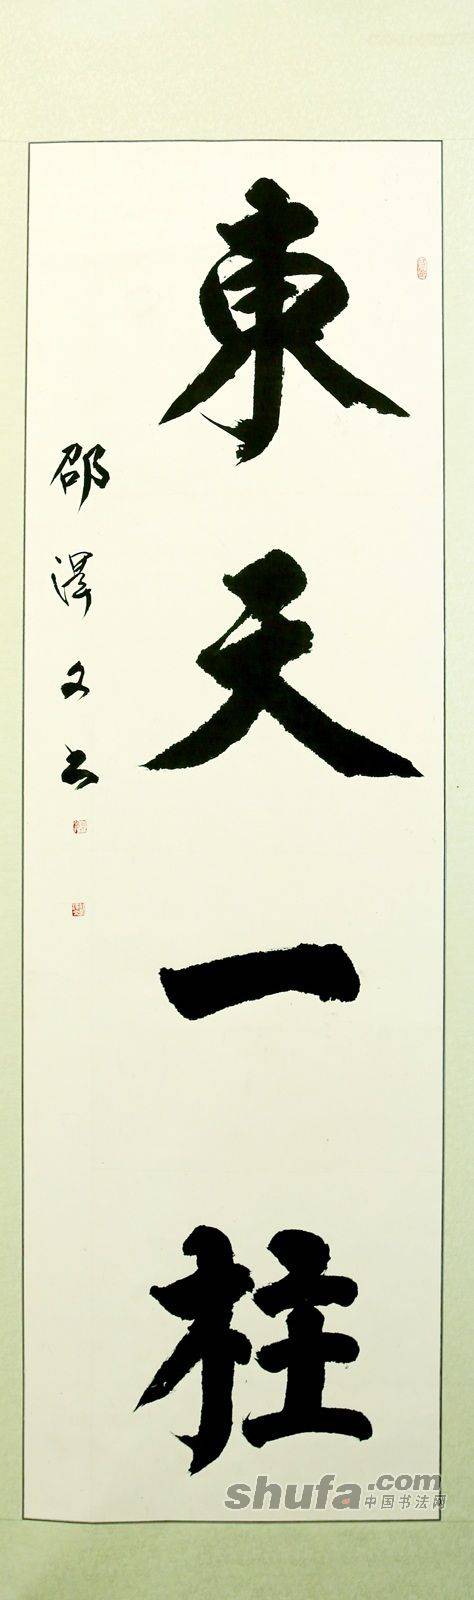 東天一柱
邵澤文书
shufa.com
中国书法网